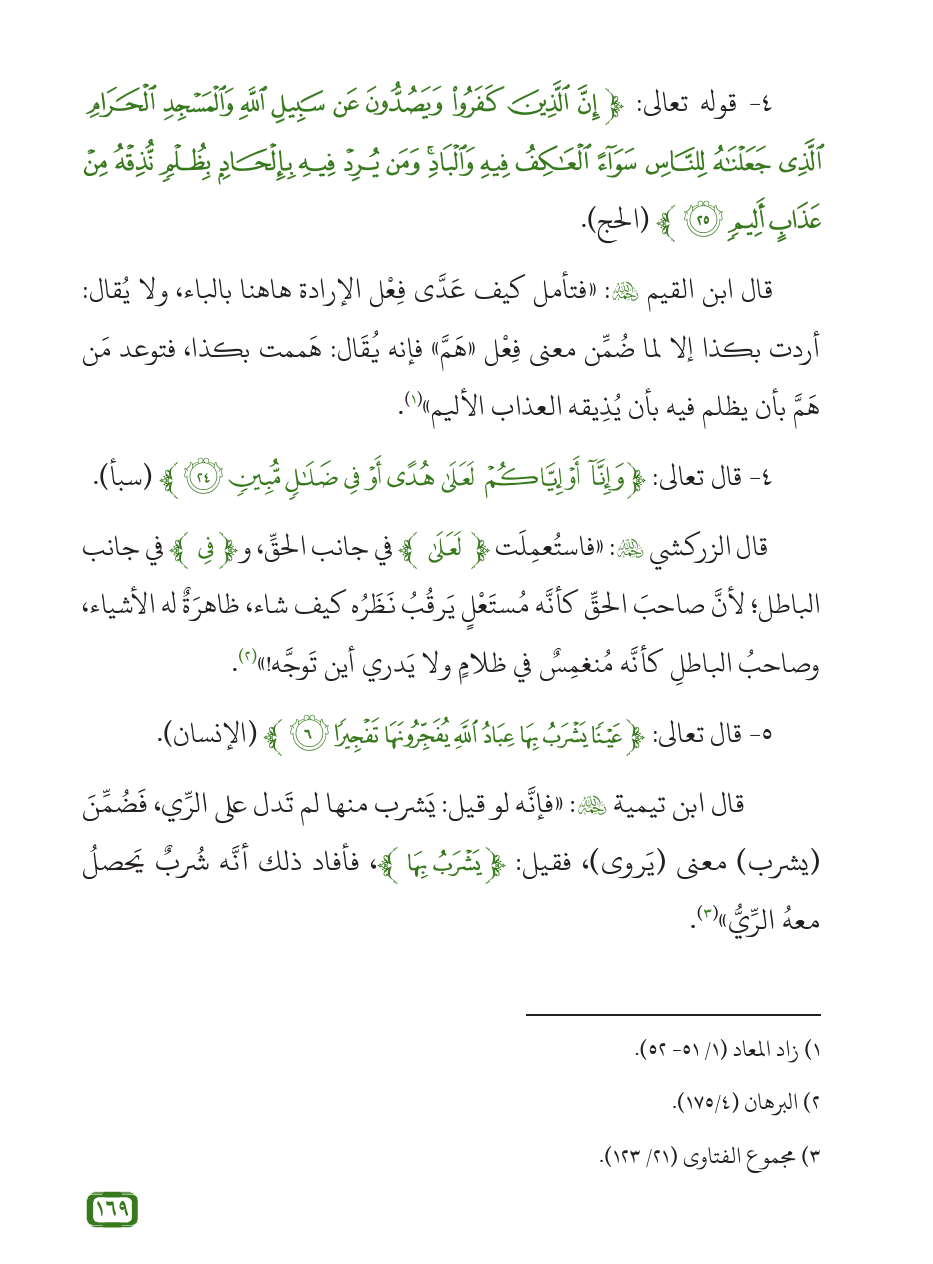 ٤- قوله تعالى: ﴿ إِنَّ ٱلَّذِينَ كَفَرُواْ وَيَصُدُّونَ عَن سَبِيلِ ٱللَّهِ وَٱلْمَسْجِدِ ٱلْحَرَامِ
ٱلَّذِى جَعَلْنَٰهُ لِلنَّاسِ سَوَآءً ٱلْعَٰكِفُ فِيهِ وَٱلْبَادِۚ وَمَن يُرِدْ فِيهِ بِإِلْحَادٍۭ بِظُلْمٍ نُّذِقْهُ مِنْ
عَذَابٍ أَلِيمٍ ٢٥ ﴾ (الحج).
قال ابن القيم رحمه الله: «فتأمل كيف عَدَّى فِعْل الإرادة هاهنا بالباء، ولا يُقال:
أردت بكذا إلا لما ضُمِّن معنى فِعْل «هَمَّ» فإنه يُقَال: هَممت بكذا، فتوعد مَن
هَمَّ بأن يظلم فيه بأن يُذِيقه العذاب الأليم»(١).
٤- قال تعالى: ﴿ وَإِنَّآ أَوْ إِيَّاكُمْ لَعَلَىٰ هُدًى أَوْ فِى ضَلَٰلٍ مُّبِينٍ ٢٤ ﴾ (سبأ).
قال الزركشي رحمه الله: «فاستُعمِلَت ﴿ لَعَلَىٰ ﴾ في جانب الحقِّ، و﴿ فِى ﴾ في جانب
الباطل؛ لأنَّ صاحبَ الحقِّ كأنَّه مُستَعْلٍ يَرقُبُ نَظَرُه كيف شاء، ظاهرَةٌ له الأشياء،
وصاحبُ الباطلِ كأنَّه مُنغمِسٌ في ظلامٍ ولا يَدري أين تَوجَّه!»(٢).
٥- قال تعالى: ﴿ عَيْنًا يَشْرَبُ بِهَا عِبَادُ ٱللَّهِ يُفَجِّرُونَهَا تَفْجِيرًا ٦ ﴾ (الإنسان).
قال ابن تيمية رحمه الله: «فإنَّه لو قيل: يَشرب منها لم تَدل على الرِّي، فَضُمِّنَ
(يشرب) معنى (يَروى)، فقيل: ﴿ يَشْرَبُ بِهَا ﴾، فأفاد ذلك أنَّه شُربٌ يَحصلُ
معهُ الرِّيُّ»(٣).
١) زاد المعاد (١/ ٥١- ٥٢).
٢) البرهان (٤/ ١٧٥).
٣) مجموع الفتاوى (٢١/ ١٢٣).
١٦٩